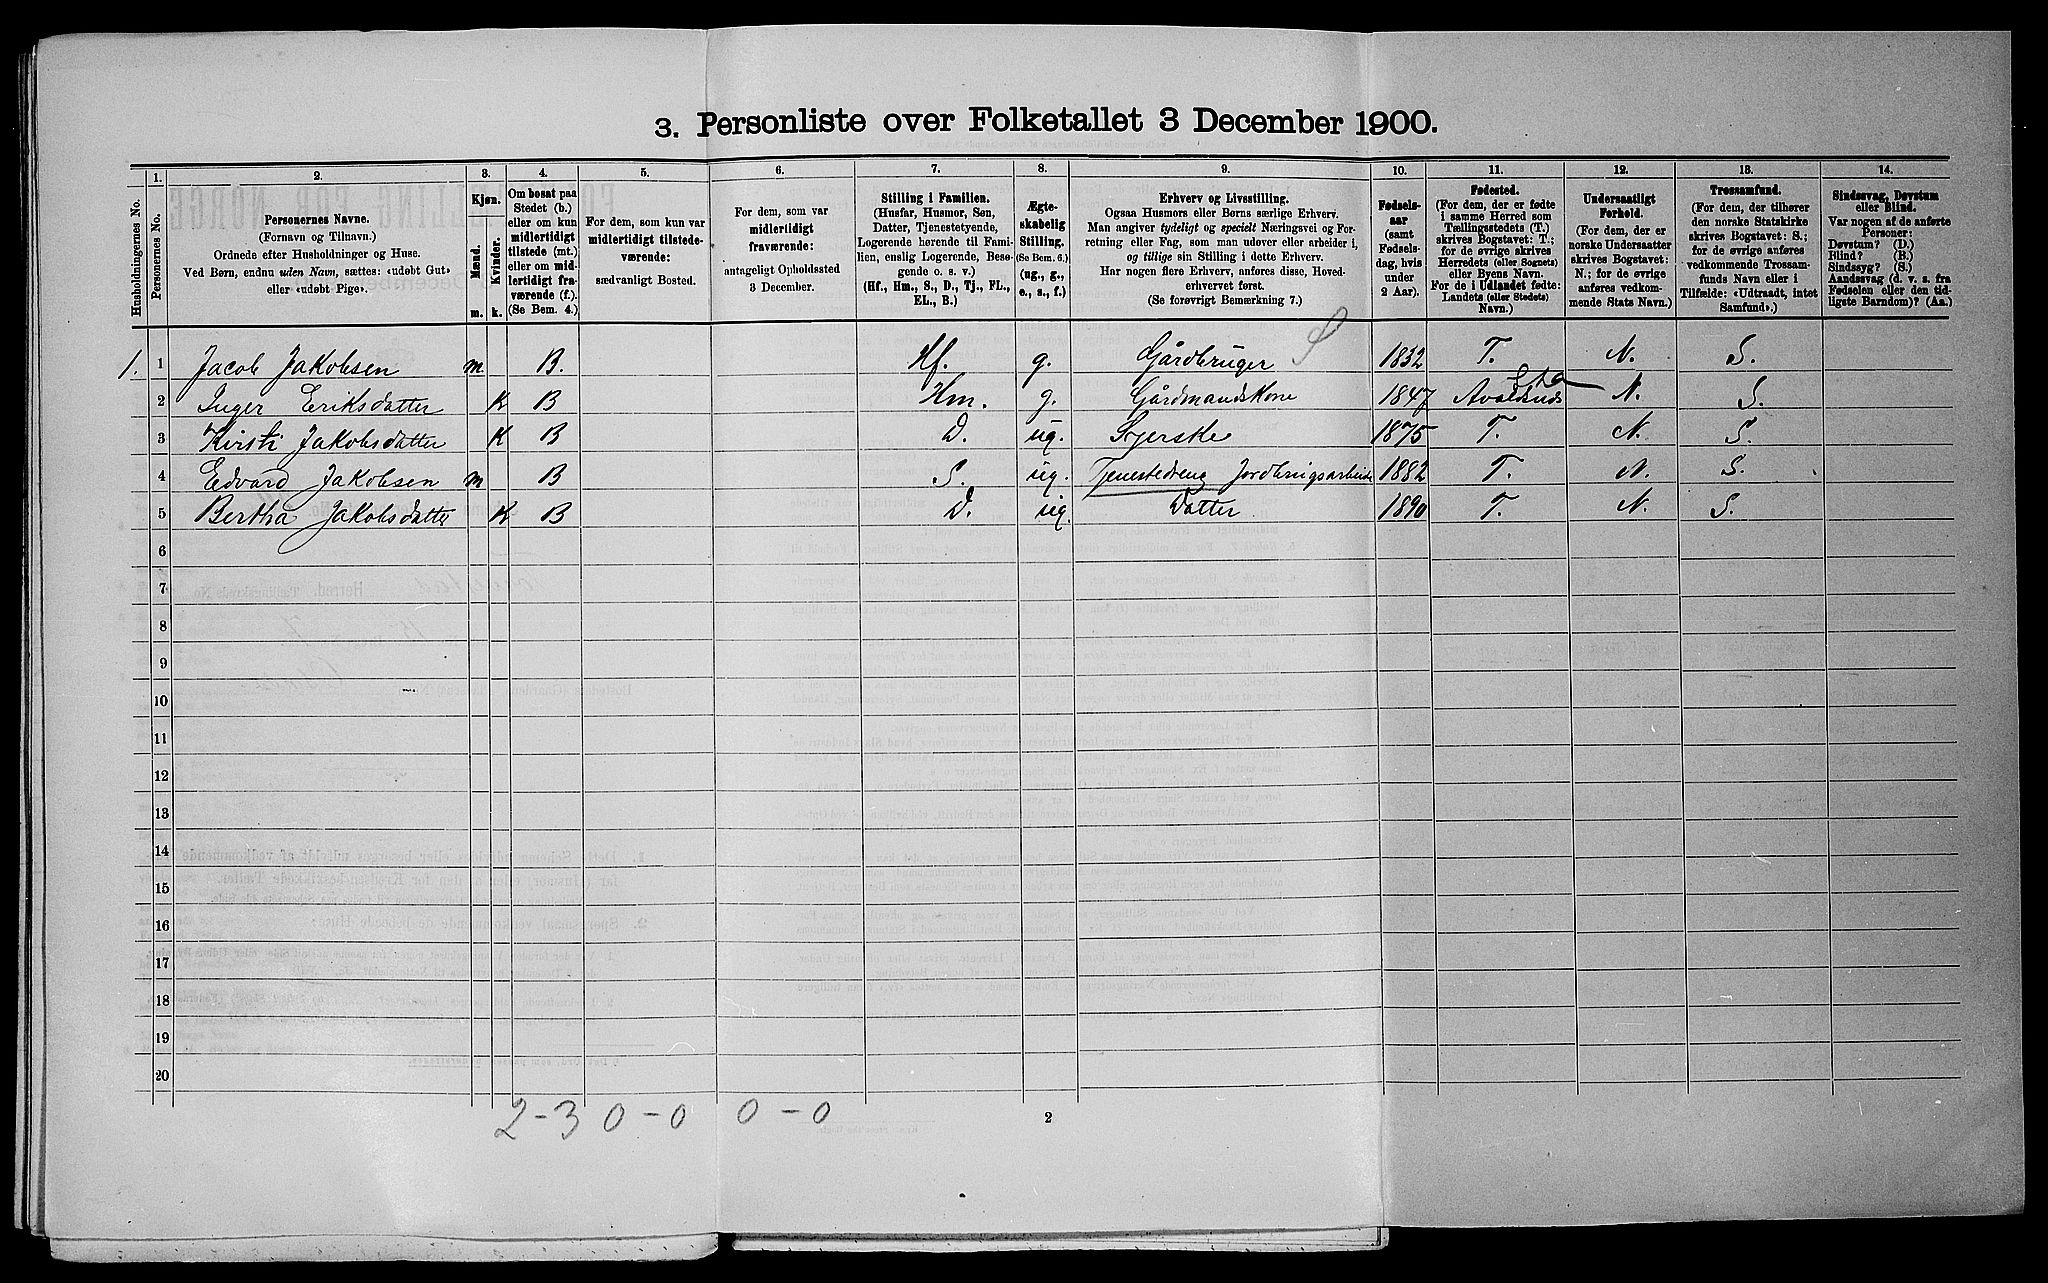 3. Personliste over Folketallet 3 December 1900.
Husholdningernes No.
1.
Personernes No.
2.
Personernes Navne.
(Fornavn og Tilnavn.)
Ordnede efter Husholdninger og Huse.
Ved Børn, endnu uden Navn, sættes: «udøbt Gut»
eller «udøbt Pige».
3.
Kjøn.
Mænd.
Kvinder.
m. k.
4.
Om bosat paa
Stedet (b.)
eller om kun
midlertidigt
tilstede (mt.)
eller om mid-
lertidigt fra-
værende (f.).
(Se Bem. 4.)
5.
For dem, som kun var
midlertidigt tilstede-
værende:
sædvanligt Bosted.
6.
For dem, som var
midlertidigt
fraværende:
antageligt Opholdssted
3 December.
7.
Stilling i Familien.
(Husfar, Husmor, Søn,
Datter, Tjenestetyende,
Logerende hørende til Fami-
lien, enslig Logerende, Besø-
gende o. s. v.)
(Hf., Hm., S., D., Tj., FL.,
EL., B.)
8.
Ægte-
skabelig
Stilling.
(Se Bem. 6.)
(ug., g.,
e., s., f.)
9.
Erhverv og Livsstilling.
Ogsaa Husmors eller Børns særlige Erhverv.
Man angiver tydeligt og specielt Næringsvei og For-
retning eller Fag, som man udøver eller arbeider i,
og tillige sin Stilling i dette Erhverv.
Har nogen flere Erhverv, anføres disse, Hoved-
erhvervet først.
(Se forøvrigt Bemærkning 7.)
10.
Fødsels-
aar
(samt
Fødsels-
dag, hvis
under
2 Aar).
11.
Fødested.
(For dem, der er fødte
i samme Herred som
Tællingsstedets (T.)
skrives Bogstavet: T.;
for de øvrige skrives
Herredets (eller Sognets)
eller Byens Navn.
For de i Udlandet fødte:
Landets (eller Stedets)
Navn.)
12.
Undersaatligt
Forhold.
(For dem, der er
norske Undersaatter
skrives Bogstavet:
N.; for de øvrige
anføres vedkom-
mende Stats Navn.)
13.
Trossamfund.
(For dem, der tilhører
den norske Statskirke
skrives Bogstavet: S.;
for de øvrige anføres
vedkommende Trossam-
funds Navn eller i
Tilfælde: «Udtraadt, intet
Samfund».)
14.
Sindssvag, Døvstum
eller Blind.
Var nogen af de anførte
Personer:
Døvstum? (D.)
Blind? (B.)
Sindssyg? (S.)
Aandssvag (d. v. s. fra
Fødselen eller den tid-
ligste Barndom)? (Aa.)
1. 1 Jacob Jakobsen m B. Hf. g. Gårdbruger S 1832 T. N. S.
2 Inger Eriksdatter K B Hm. g. Gårdmandskone 1847 Avaldsnds N. S.
3 Kirsti Jakobsdatter K B D. ug. Syerske 1875 T. N. S.
4 Edvard Jakobsen m B S. ug. Tjenestedreng Jordbrugsarbeide 1882 T. N. S.
5 Bertha Jakobsdatter K B D. ug. Datter 1890 T. N. S.
6
7
8
9
10
11
12
13
14
15
16
17
18
19
20
2-3 0-0 0-0
2